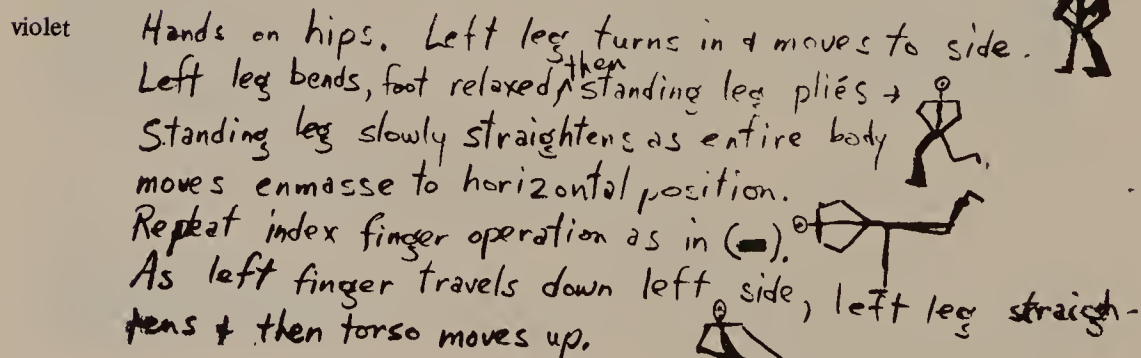 violet Hands on hips. Left leg turns in & moves to side.
Left leg bends, foot relaxed, then standing leg pliés →
Standing leg slowly straightens as entire body
moves enmasse to horizontal position.
Repeat index finger operation as in (▬).
As left finger travels down left side, left leg straigh-
tens & then torso moves up.